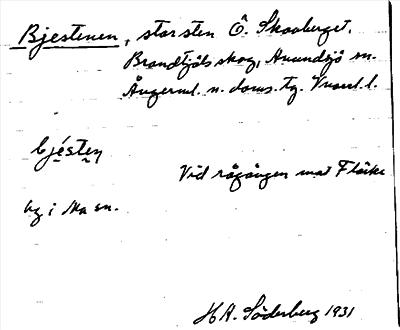 Bjestenen, stor sten Ö. Skaaberget.
Brandtjäls skog, Anundsjö sn.
Ångerml. n. doms. tg. Vnorrl. l.
bjésten
Vid rågången mot Fläske
hg i Ma sn.
H A. Söderberg 1931